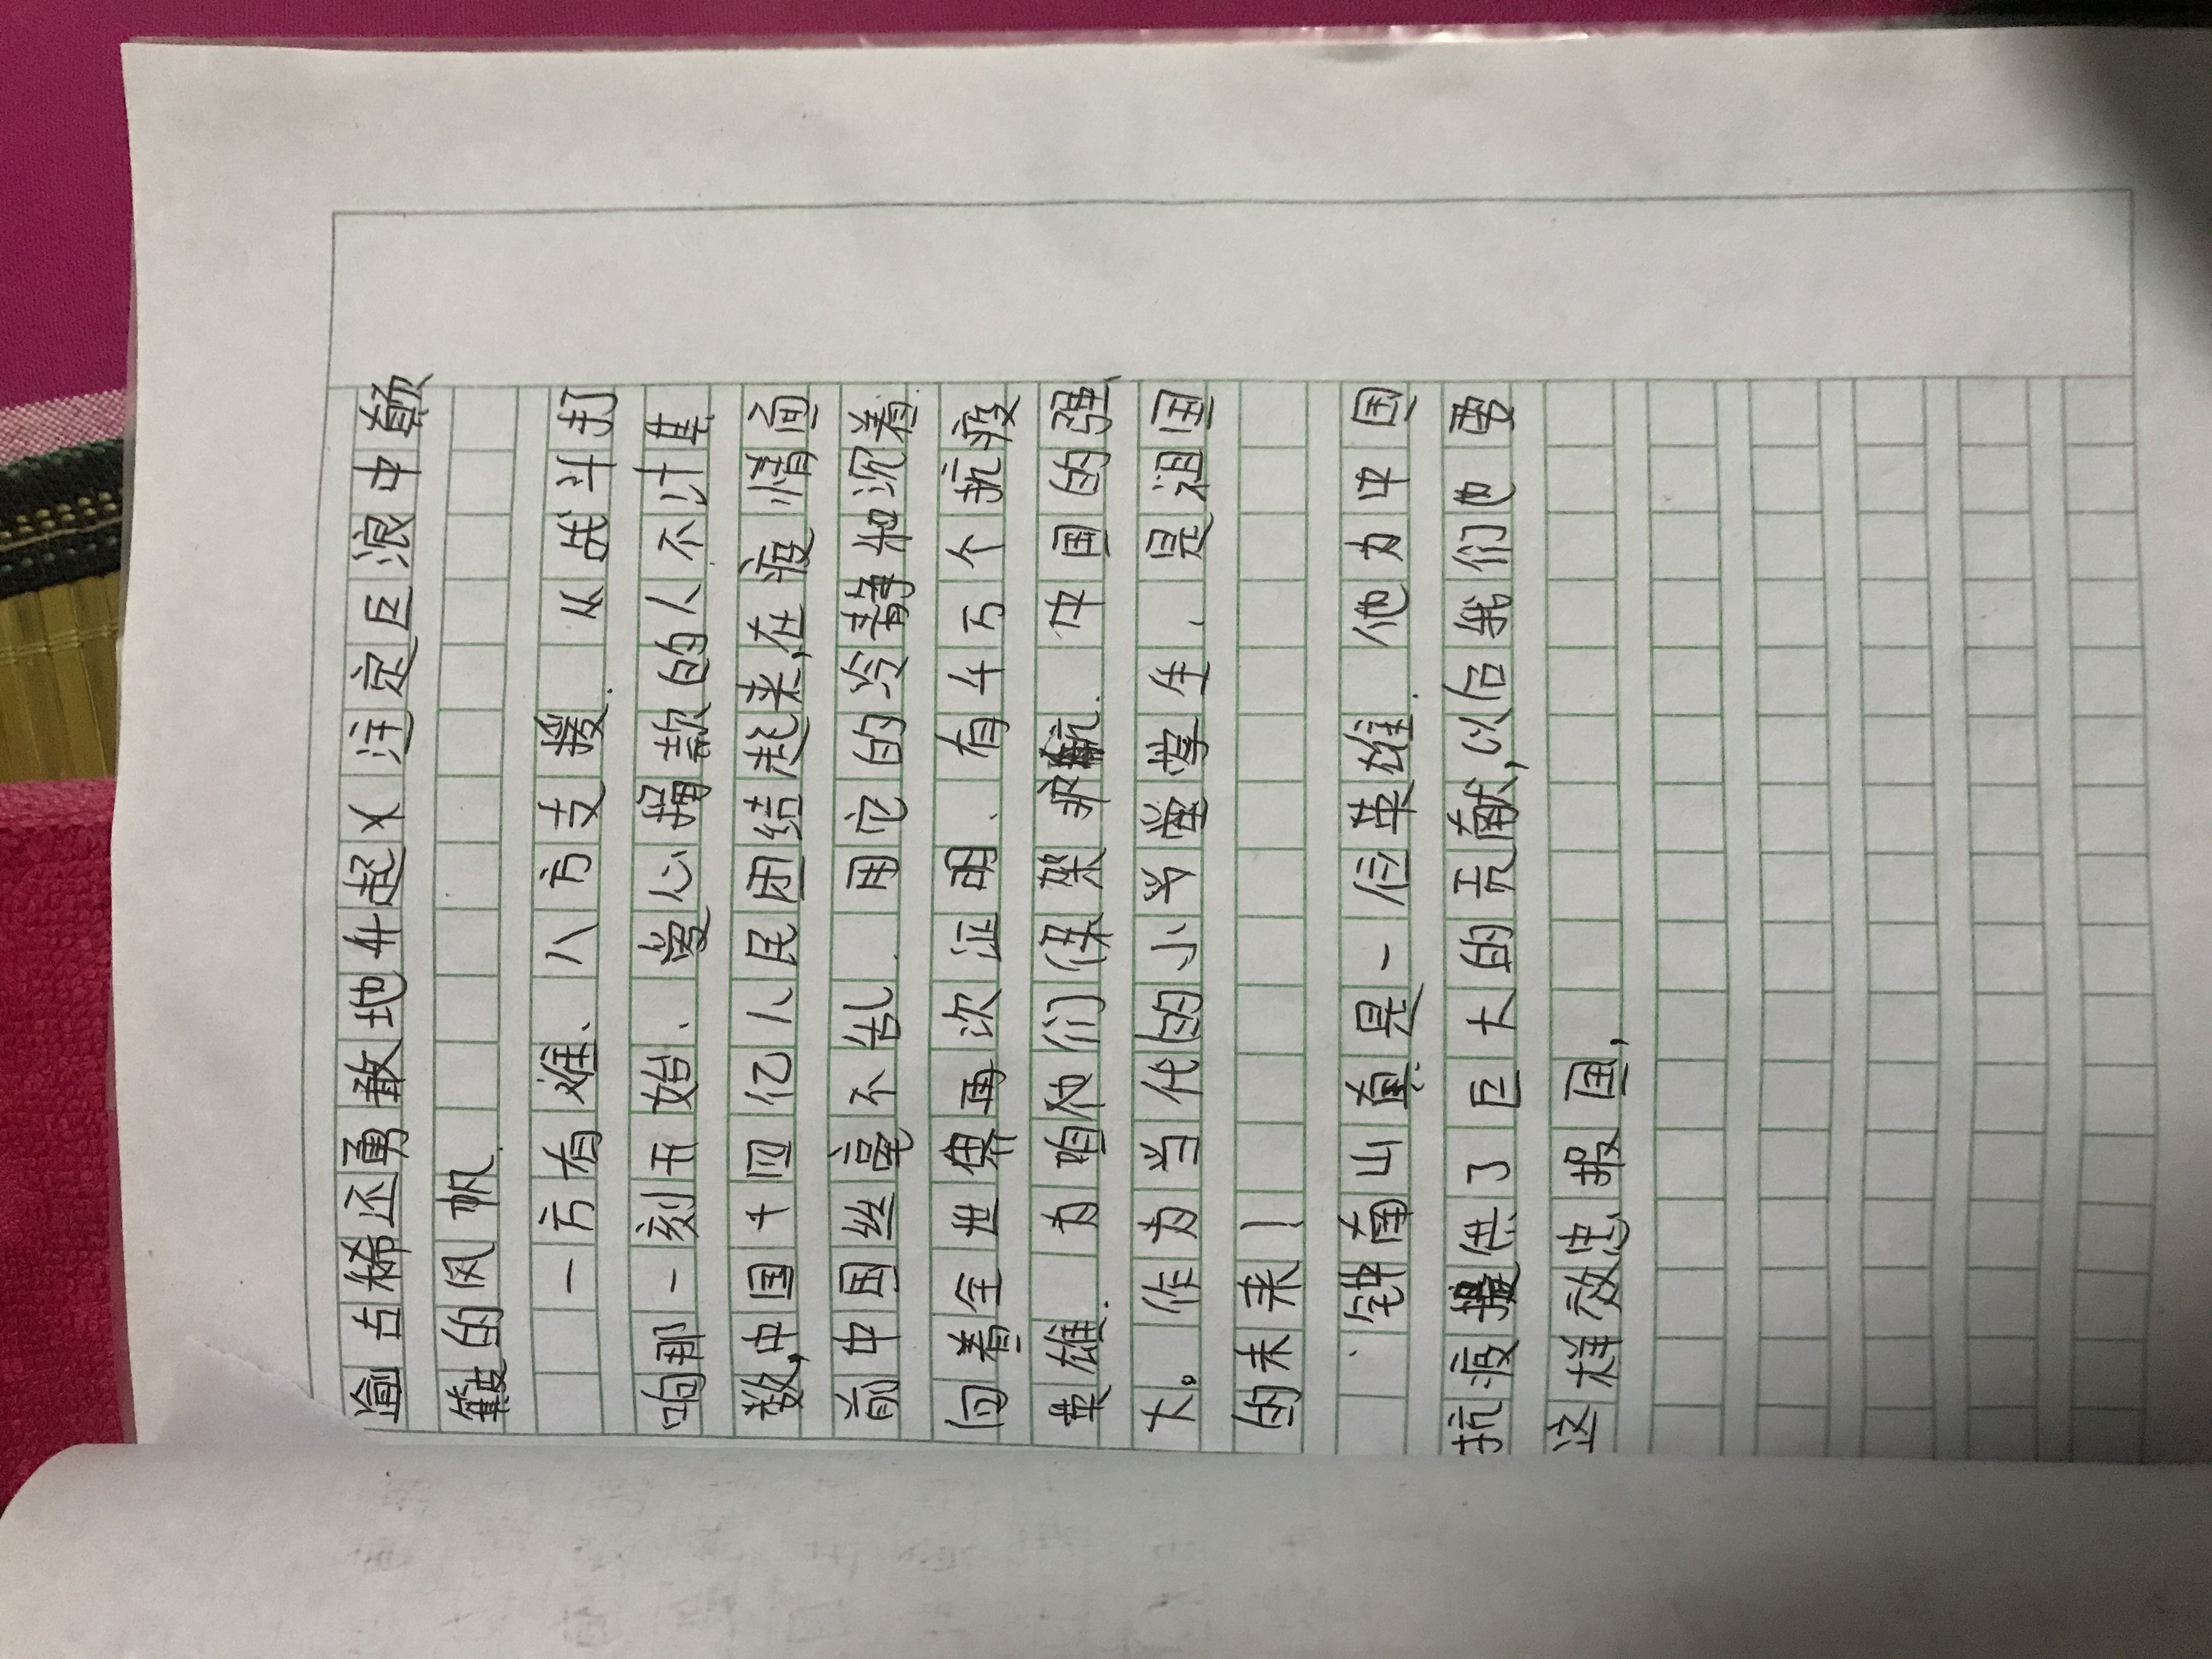 逾古稀还勇敢地升起（注定巨浪中颠
簸的风帆.
一方有难、八方支援.从战斗打
响那一刻开始.爱心捐款的人不计其
数,中国十四亿人民团结起来,在疫情面
前中国丝毫不乱.用它的冷静和沉着
回着全世界再次证明、有千万个抗疫
英雄.为咱们保驾护航.中国的强
大。作为当代的小学堂学生、是祖国
的未来！
钟南山真是一位英雄.他为中国
抗疫提供了巨大的贡献,以后我们也要
这样效忠报国,